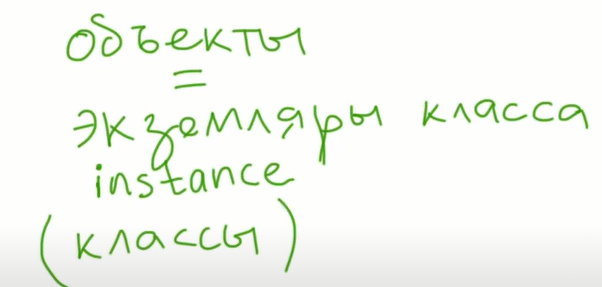 объекты
=
экземляры класса
instance
(классы)